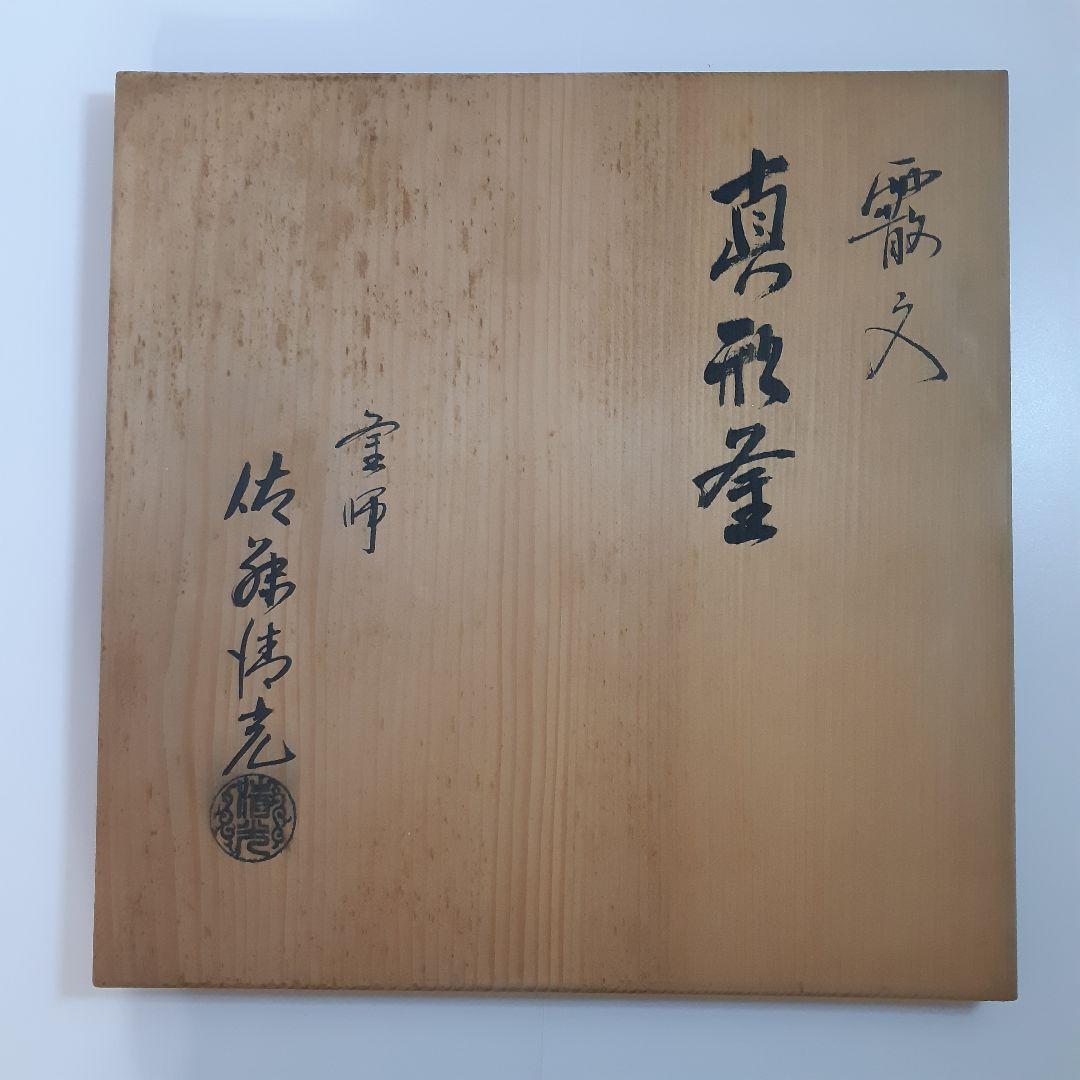 霰文
真形釜
釜師
佐藤清光
清光